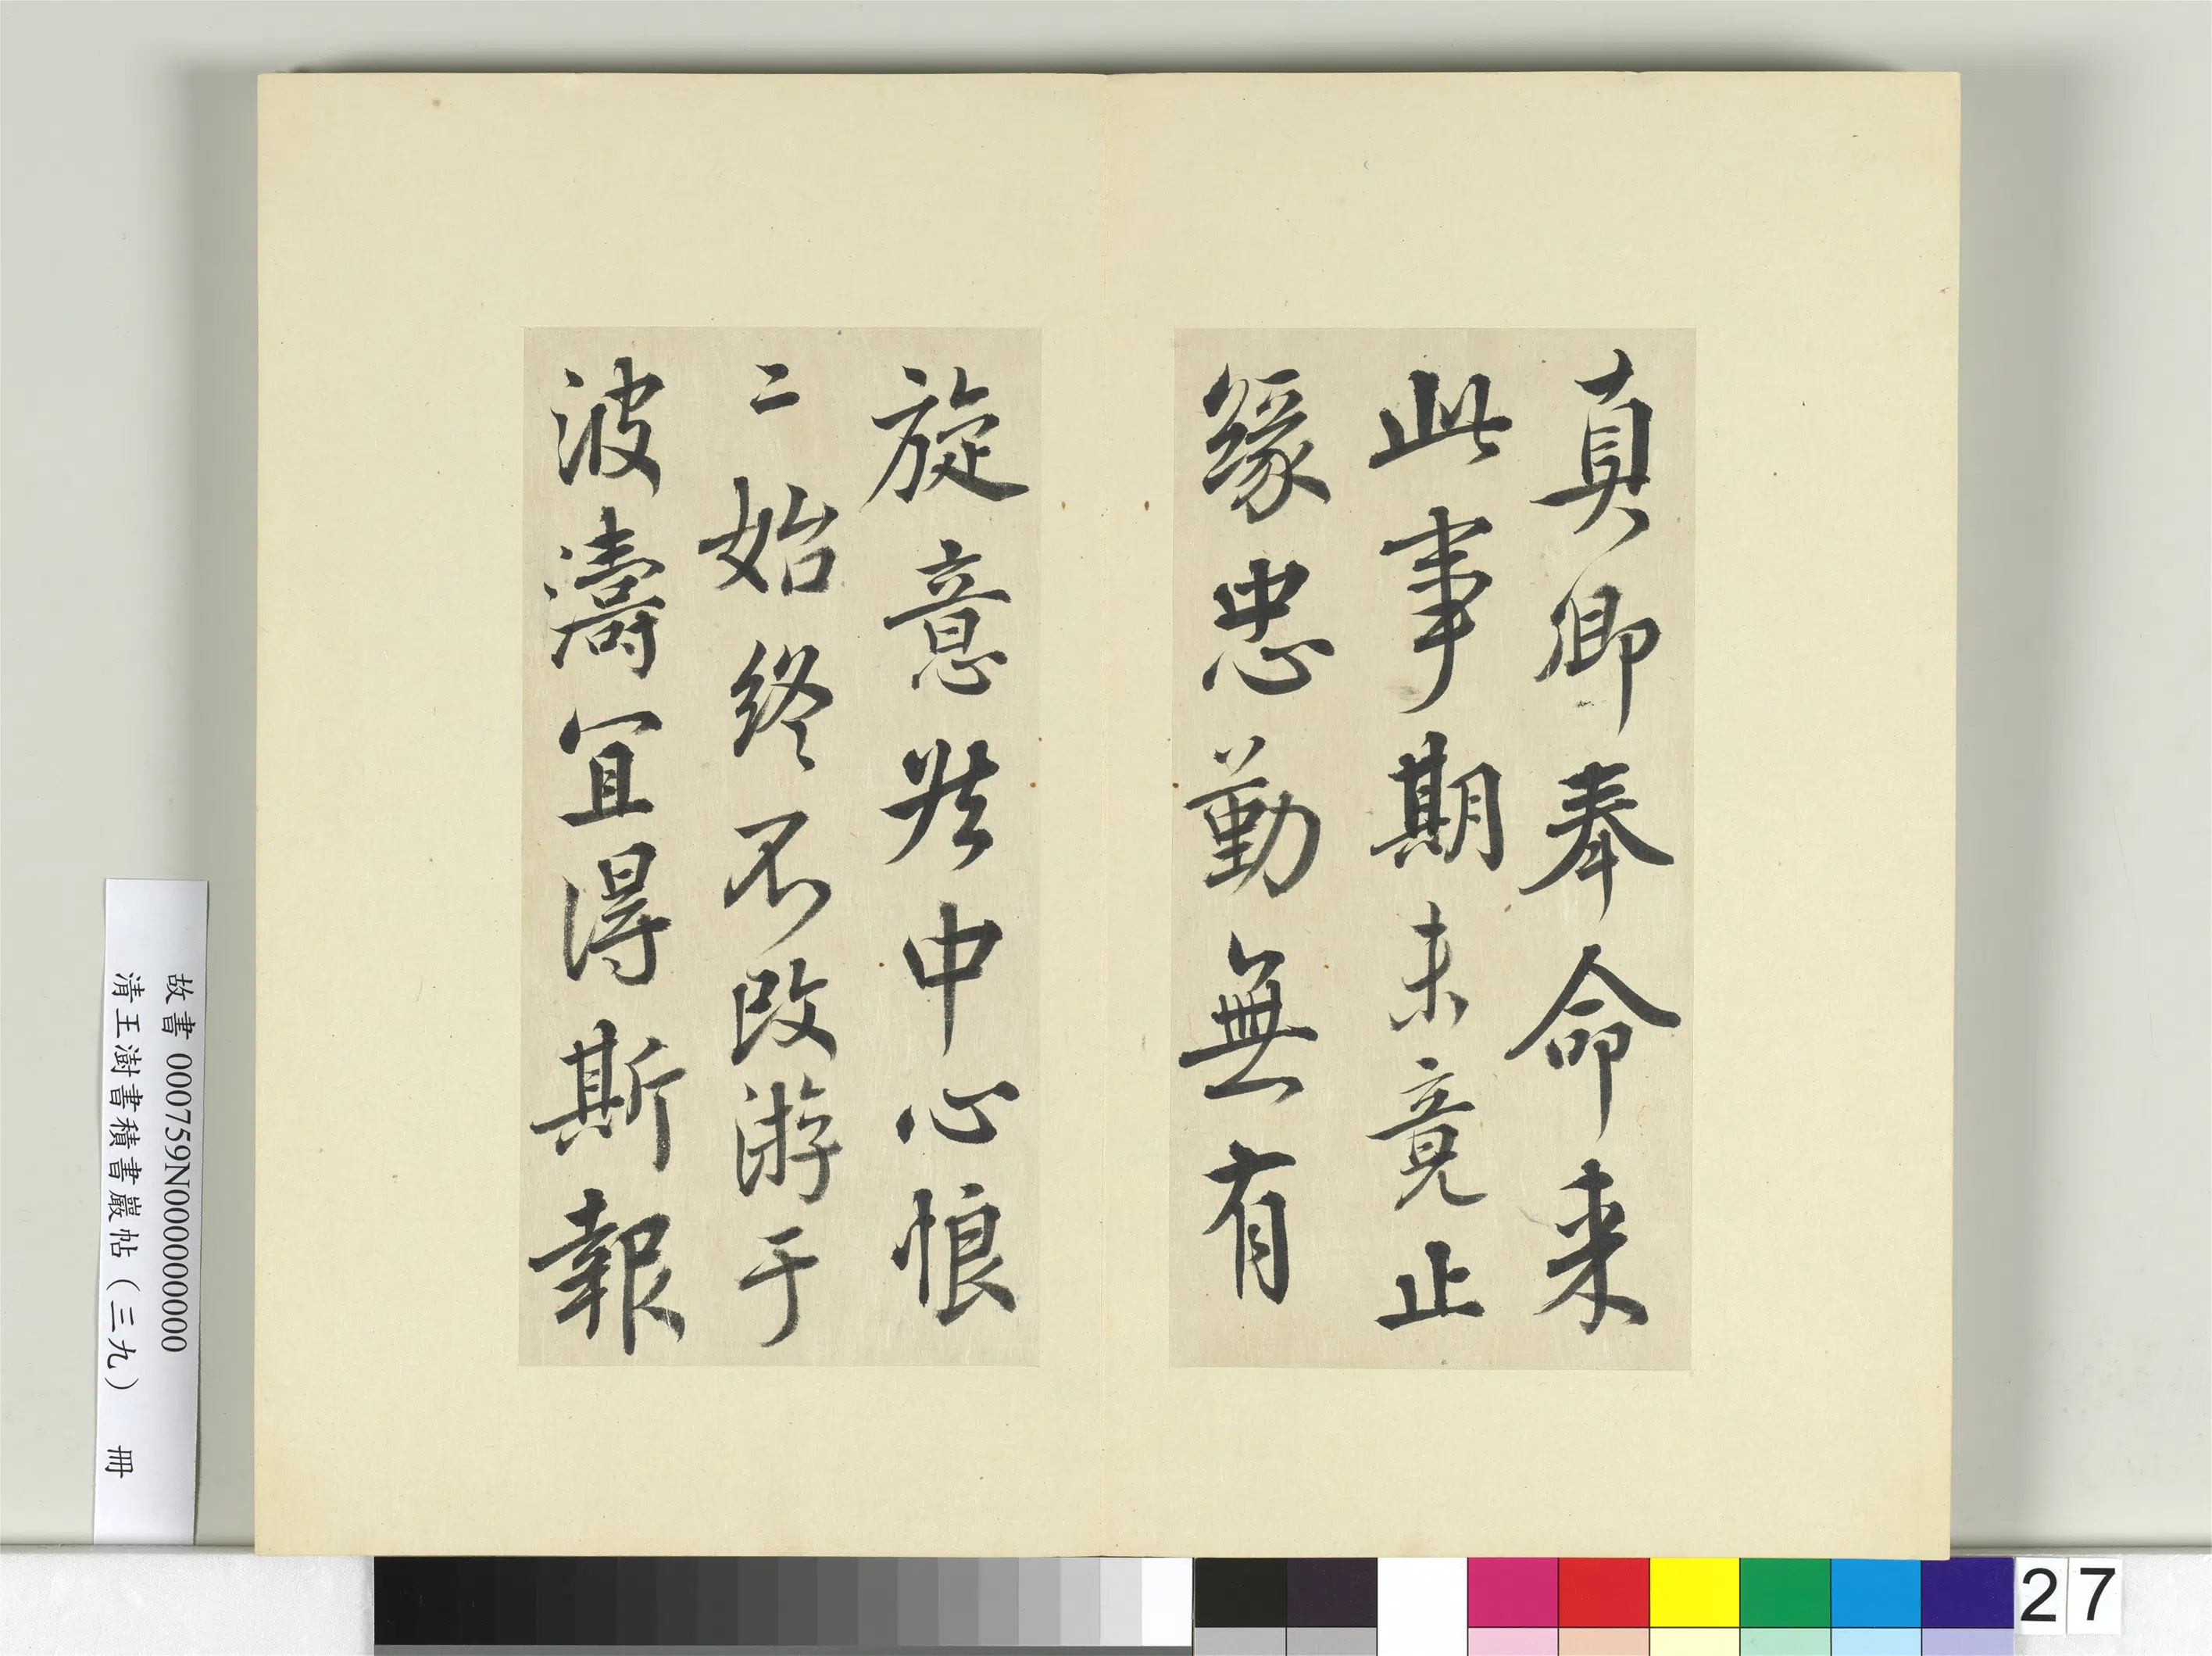 真卿奉命来
此事期未竟止
緣忠勤無有
旋意然中心悢
二始終不改游于
波濤宜得斯報
故書 000759N000000000
清王澍書積書巖帖(三九) 冊
27